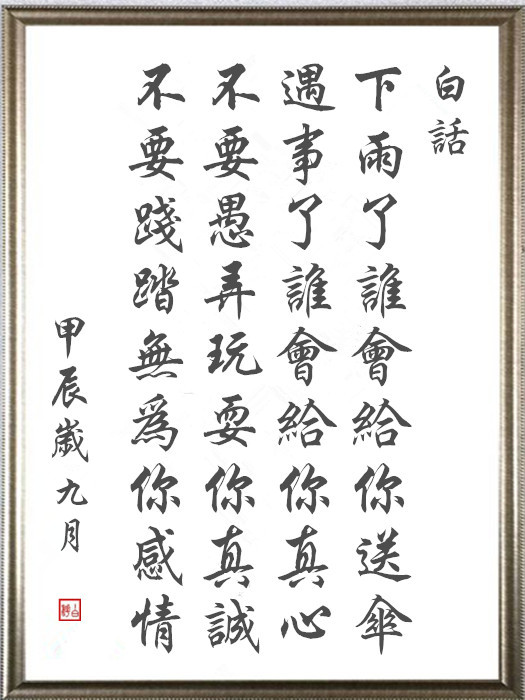 白話
下雨了誰會給你送傘
遇事了誰會給你真心
不要愚弄玩耍你真誠
不要踐踏無為你感情
甲辰歲九月